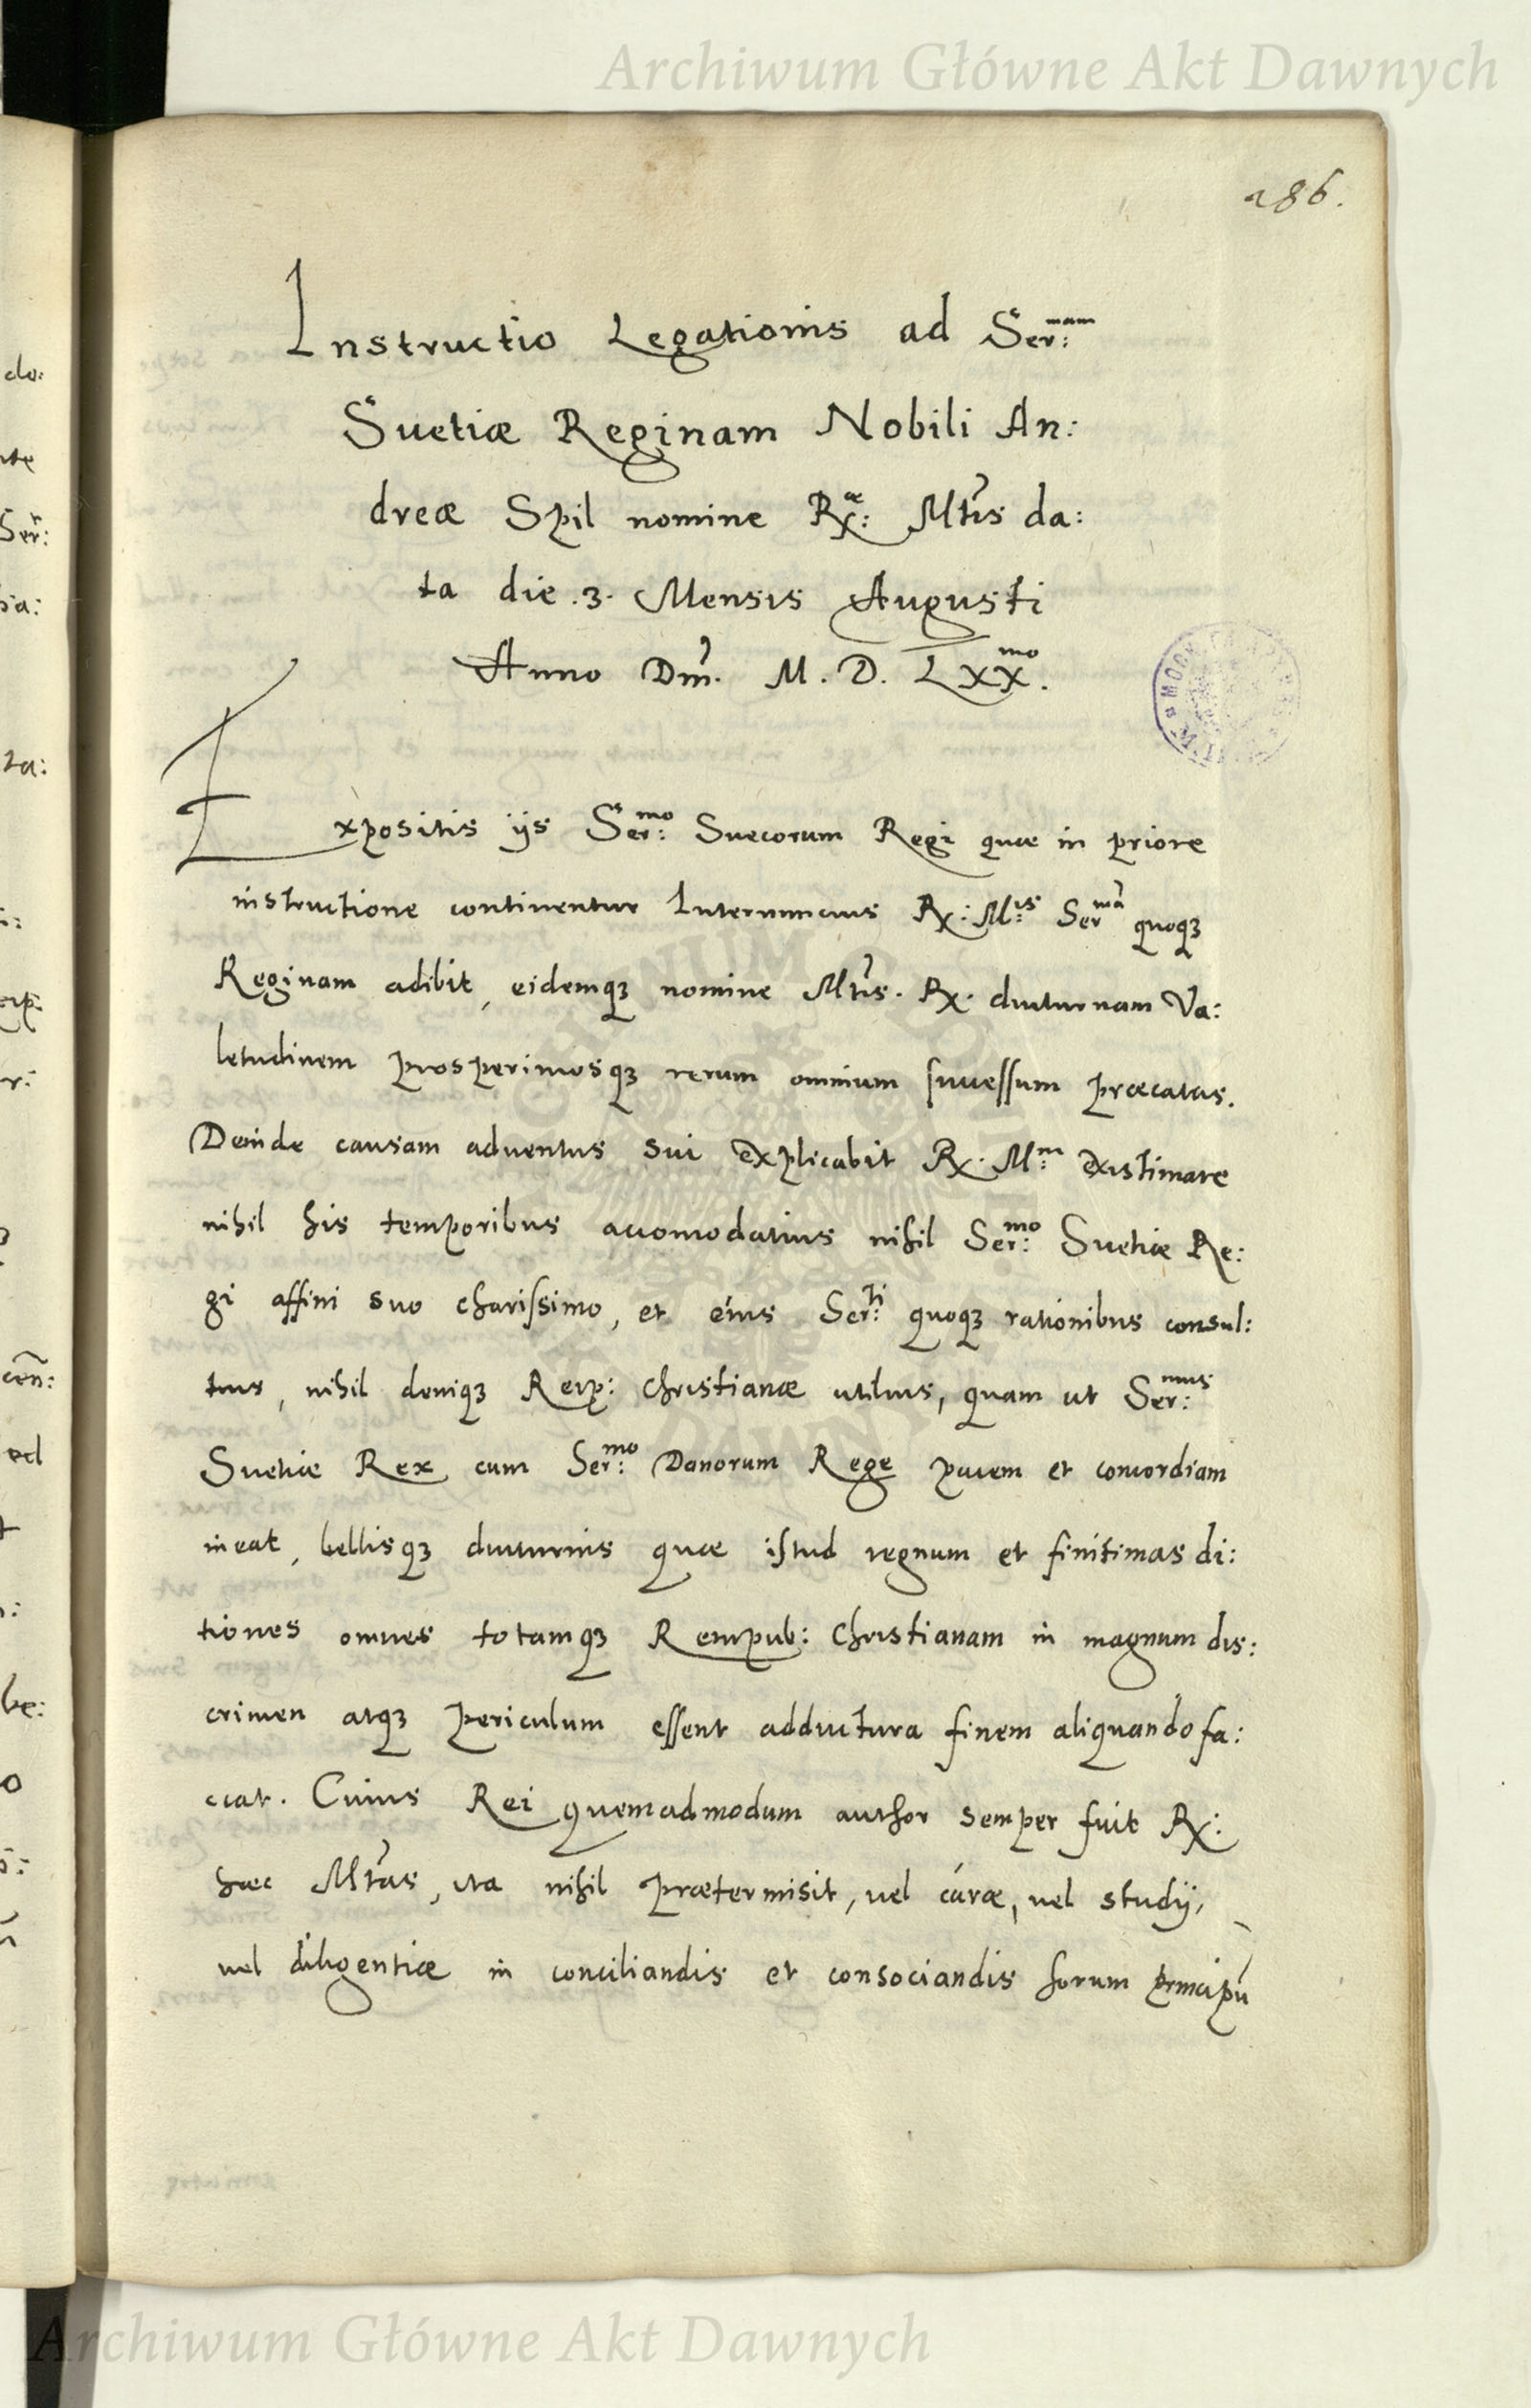 Archiwum Główne Akt Dawnych
286.
Instructio Legationis ad Ser:mam
Suetiæ Reginam Nobili An:
dreæ Spil nomine Rx:æ Mtis da:
ta die .3. Mensis Augusti
Anno Dm̃. M. D. LXX.mo
Expositis ijs Ser:mo Suecorum Regi quæ in priore
instructione continentur Internuncius Rx: M:tis Sermã quoqȝ
Reginam adibit, eidemqȝ nomine Mtis. Rx. diuturnam Va:
letudinem prosperimosqȝ rerum omnium successum præcatus.
Deinde causam aduentus sui explicabit Rx. M:m existimare
nihil his temporibus accomodatius nihil Ser:mo Suetiæ Re:
gi affini suo charissimo, et eius Ser:ti quoqȝ rationibus consul:
tius, nihil deniqȝ Reip: Christianæ utilius, quam ut Ser:mus
Suetiæ Rex cum Ser:mo Danorum Rege pacem et concordiam
ineat, bellisqȝ diuturnis quæ istud regnum et finitimas di:
tiones omnes totamqȝ Rempub: Christianam in magnum dis:
crimen atqȝ periculum essent adductura finem aliquando fa:
ciat. Cuius Rei quemadmodum author semper fuit Rx:
hæc Mtas, ita nihil prætermisit, vel curæ, vel studij,
vel diligentiæ in conciliandis et consociandis horum principũ
Archiwum Główne Akt Dawnych